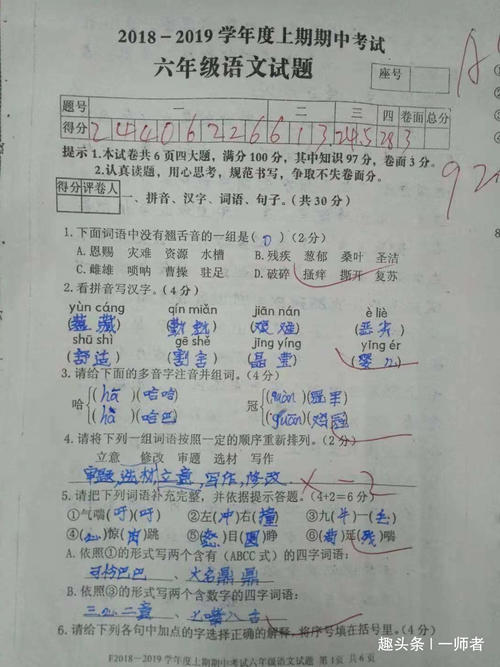 2018－2019学年度上期期中考试
六年级语文试题
座号
题号 一 二 三 四 卷面 总分
得分 2 4 4 0 6 2 2 6 6 1 3 24.5 28 3
提示 1.本试卷共6页四大题，满分100分，其中知识97分，卷面3分。
2.认真读题，用心思考，规范书写，争取不失卷面分。
得分 评卷人
一、拼音、汉字、词语、句子。（共30分）
1.下面词语中没有翘舌音的一组是( D )(2分)
A.恩赐 灾难 资源 水槽 B.残疾 葱郁 桑叶 圣洁
C.雌雄 唢呐 曹操 驻足 D.破碎 搔痒 撕开 复苏
2.看拼音写汉字。（4分）
yùn cáng qín miǎn jiān nán è liè
(蕴藏) (勤勉) (艰难) (恶劣)
shū shì gē shě jīng yíng yīng ér
(舒适) (割舍) (晶莹) (婴儿)
3.请给下面的多音字注音并组词。（4分）
哈 (hā)(哈哈) 冠 (guān)(冠军)
(hǎ)(哈巴) (guān)(鸡冠)
4.请将下列一组词语按照一定的顺序重新排列。（2分）
立意 修改 审题 选材 写作
审题，选材，立意，写作，修改 -2
5.请把下列词语补充完整，并依据提示答题。（4+2=6分）
①气喘(吁)(吁) ②左(冲)右(撞) ③九(牛)一(毛)
④(心)惊(肉)跳 ⑤(怒)目(圆)睁 ⑥(苟)延(残)喘
A.依照①的形式写两个含有(ABCC式)的四字词语：
可怜巴巴、大名鼎鼎
B.依照③的形式写两个含数字的四字词语：
三心二意、七嘴八舌
6.请给下列各句中加点的字选择正确的解释，将序号填在括号里。（4分）
F2018－2019学年度上期期中考试六年级语文试题 第1页 共6页
趣头条！一师者